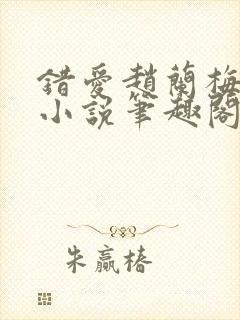 錯愛趙蘭梅
小說筆趣閣
朱贏椿